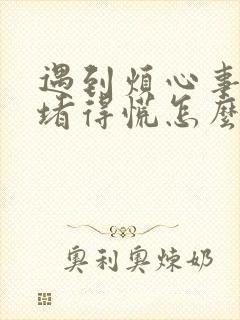 遇到煩心事
堵得慌怎麼
奧利奧煉奶